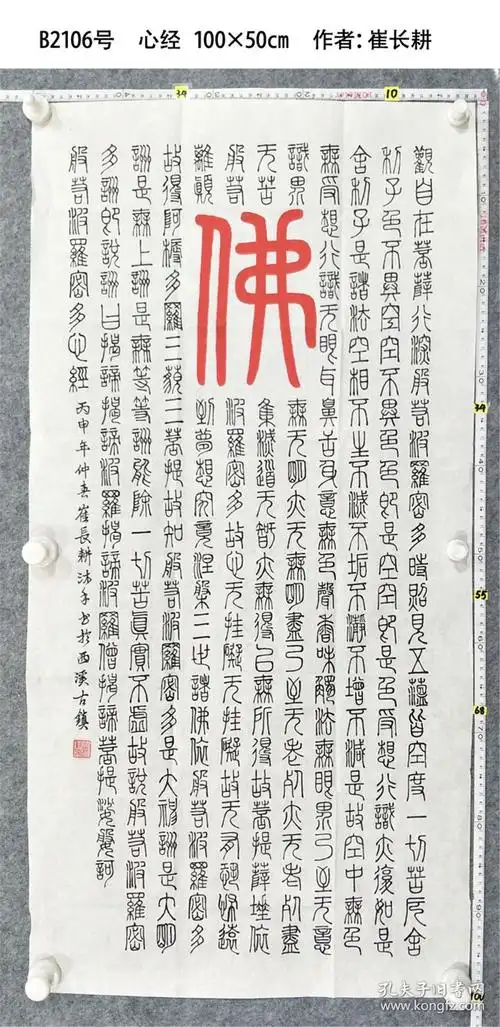 B2106号 心经 100×50㎝ 作者:崔长耕
觀自在菩薩行深般若波羅密多時照見五蘊皆空度一切苦厄舍
利子色不異空空不異色色即是空空即是色受想行識亦復如是
舍利子是諸法空相不生不滅不垢不淨不增不減是故空中無色
無受想行識无眼耳鼻舌身意無色聲香味觸法無眼界乃至无意
識界無无明亦无無明盡乃至无老死亦无老死盡
无苦集滅道无智亦無得以無所得故菩提薩埵依
般若波羅密多故心无挂礙无挂礙故无有恐怖遠
離顛到夢想究竟涅槃三世諸佛依般若波羅密多
佛
故得阿耨多羅三藐三菩提故知般若波羅密多是大神詶是大明
詶是無上詶是無等等詶能除一切苦真實不虛故說般若波羅密
多詶即說詶曰揭諦揭諦波羅揭諦波羅僧揭諦菩提娑婆訶
般若波羅密多心經
丙申年仲春崔長耕沐手書於西古鎮
孔夫子旧书网